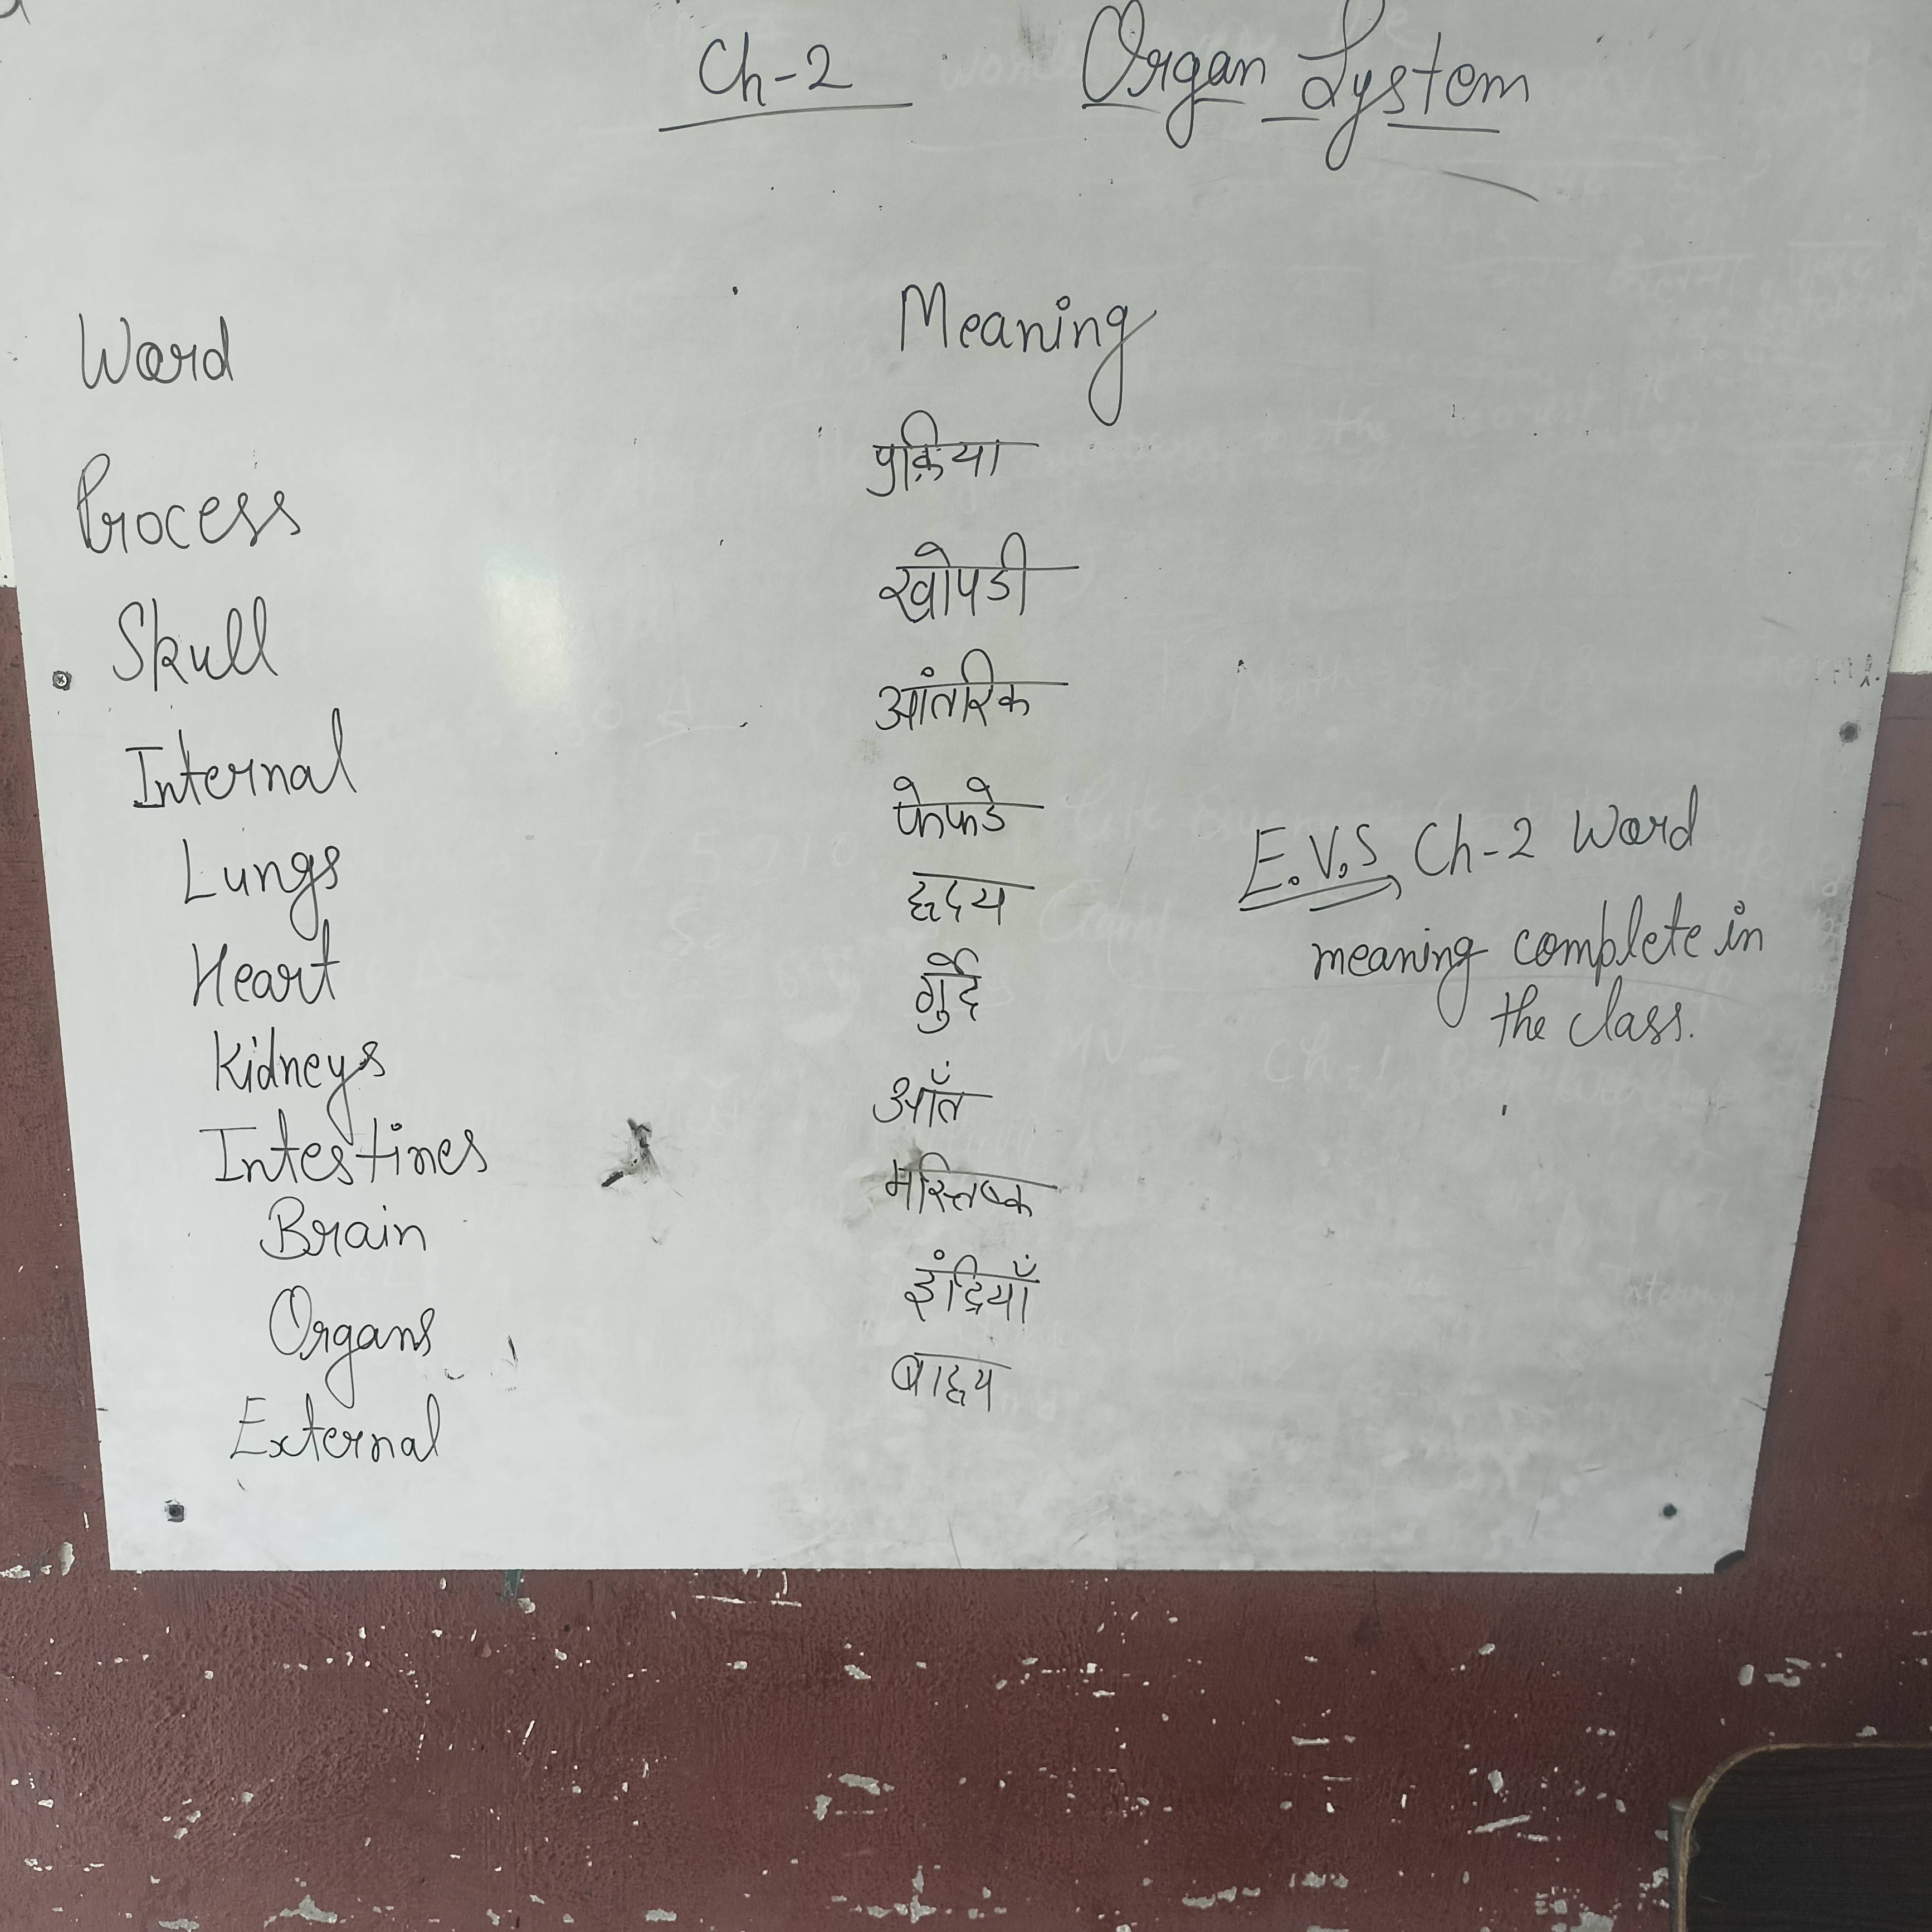 Ch-2 Organ System
Word Meaning
Process प्रक्रिया
Skull खोपडी
Internal आंतरिक
Lungs फेफडे
Heart हृदय
Kidneys गुर्दे
Intestines आँत
Brain मस्तिष्क
Organs इंद्रियाँ
External बाह्य
E.V.S Ch-2 Word
meaning complete in
the class.